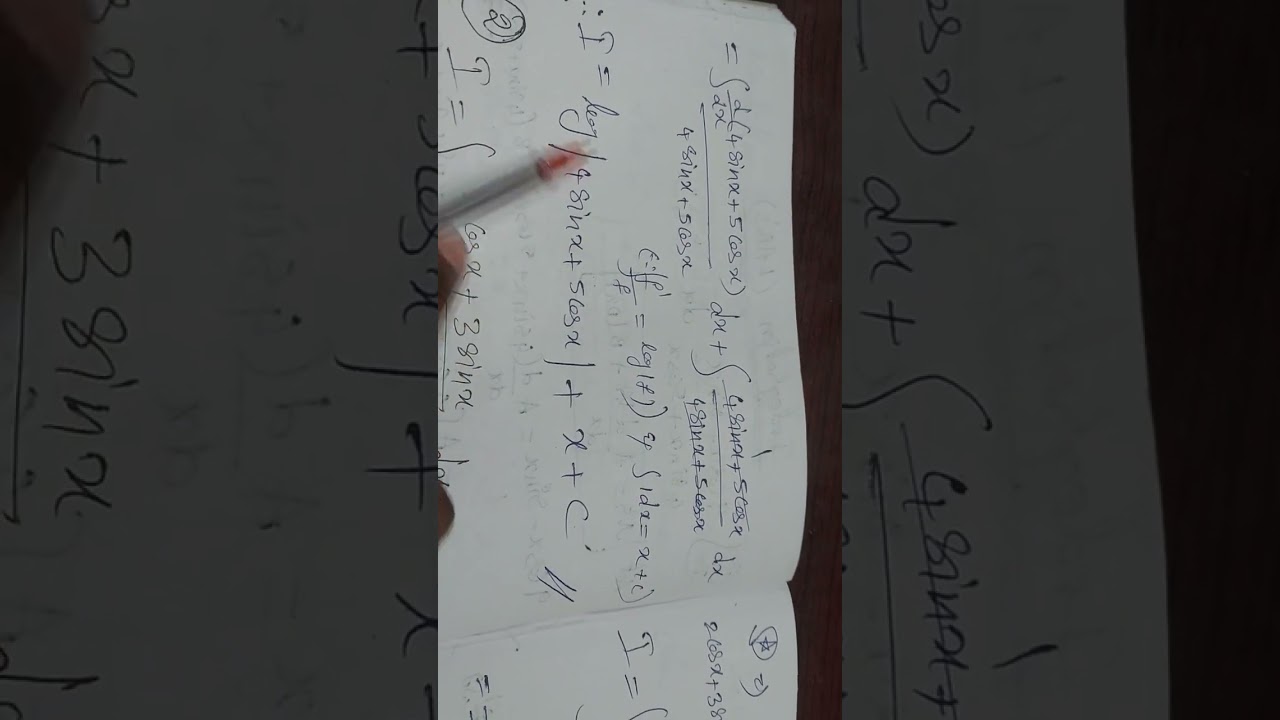 = ∫ d/dx (4 sinx + 5 cosx) / (4 sinx + 5 cosx) dx + ∫ (4 sinx + 5 cosx) / (4 sinx + 5 cosx) dx
(∵ ∫ f'/f = log |f|) & ∫ 1 dx = x + c)
∴ I = log |4 sinx + 5 cosx| + x + C //
② I = ∫ cosx + 3 sinx dx
2 cosx + 3 s
I = ∫
=